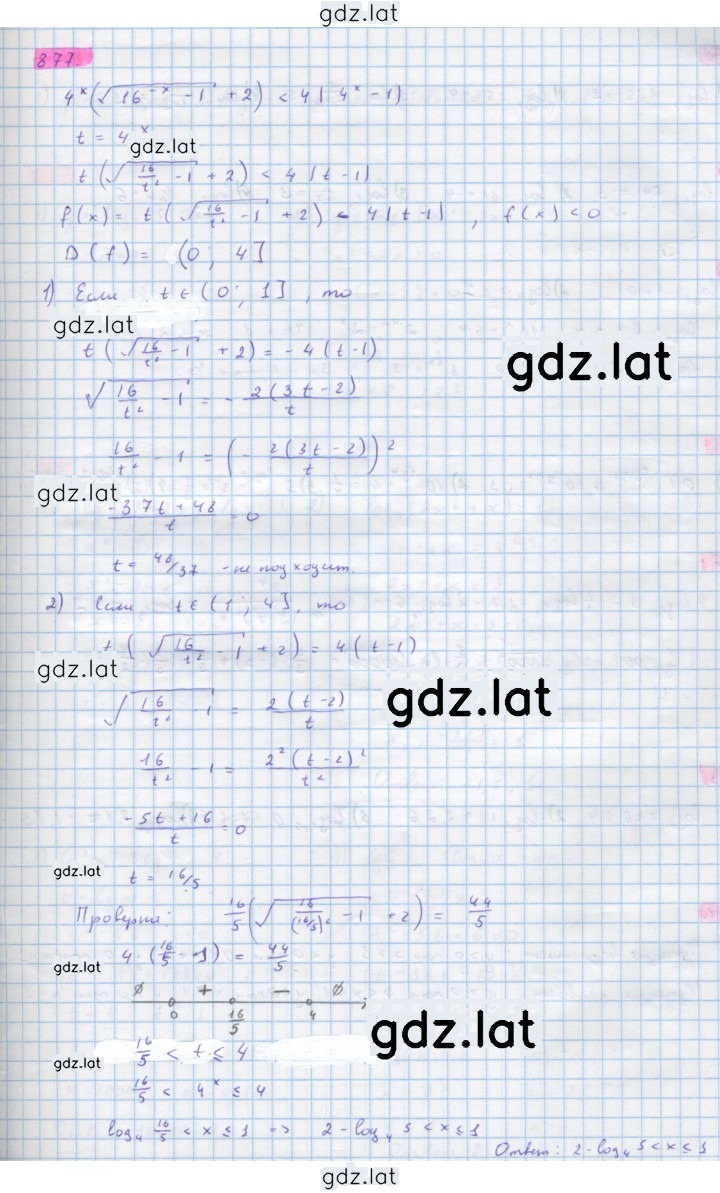 gdz.lat
877.
4^x(√(16^(-x) - 1) + 2) < 4|4^x - 1|
t = 4^x
gdz.lat
t(√(16/t² - 1) + 2) < 4|t - 1|
f(x) = t(√(16/t² - 1) + 2) - 4|t - 1|, f(x) < 0
D(f) = (0; 4]
1) Если t ∈ (0; 1], то
gdz.lat
t(√(16/t² - 1) + 2) = -4(t - 1)
gdz.lat
√(16/t² - 1) = - 2(3t - 2)/t
16/t² - 1 = (- 2(3t - 2)/t)²
gdz.lat
(-37t + 48)/t = 0
t = 48/37 - не подходит.
2) Если t ∈ (1; 4], то
t(√(16/t² - 1) + 2) = 4(t - 1)
gdz.lat
gdz.lat
√(16/t² - 1) = 2(t - 2)/t
16/t² - 1 = 2²(t - 2)²/t²
(-5t + 16)/t = 0
gdz.lat
t = 16/5
Проверка: 16/5(√(16/(16/5)² - 1) + 2) = 44/5
4 · (16/5 - 1) = 44/5
gdz.lat
∅ + - ∅
0 16/5 4
gdz.lat
16/5 < t ≤ 4
gdz.lat
16/5 < 4^x ≤ 4
log₄ 16/5 < x ≤ 1 => 2 - log₄ 5 < x ≤ 1
Ответ: 2 - log₄ 5 < x ≤ 1
gdz.lat